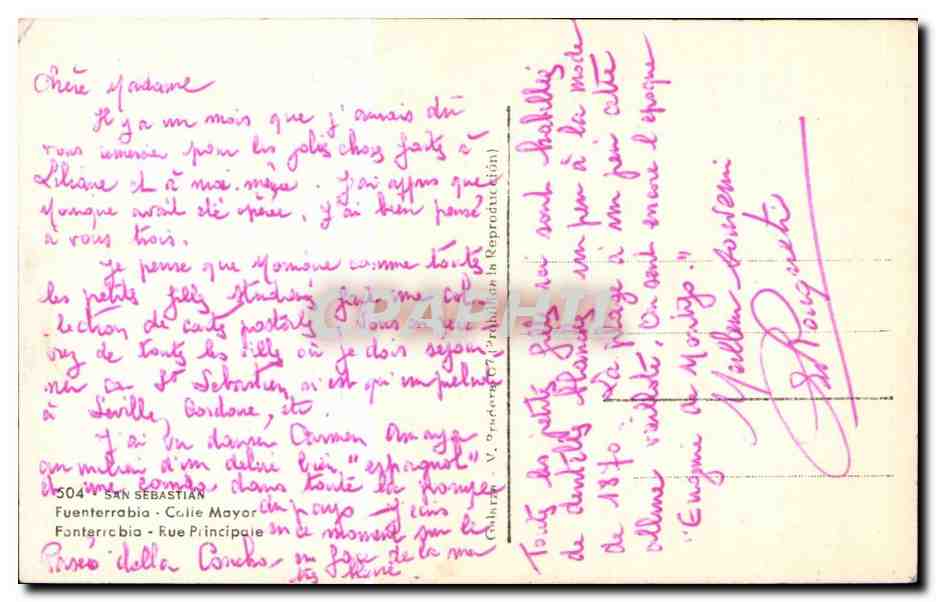 Chère Madame
Il y a un mois que j'aurais dû
vous remercier pour les jolies choses faites à
Liliane et à moi-même. J'ai appris que
Monique avait été opérée, j'ai bien pensé
à vous trois.
Je pense que Monique comme toutes
les petites filles studieuses fait une col
lection de cartes postales. Vous en
de toutes les villes où je dois séjour
ner car St Sébastien n'est qu'un prélude
à Séville, Cordoue, etc.
J'ai vu danser Carmen Amaya
au milieu d'un délire bien "espagnol"
et une corrida dans toute la pompe
du pays. J'écris
en ce moment sur le
Paseo della Concha en face de la mer
504 - SAN SEBASTIAN
Fuenterrabia - Calle Mayor
Fonterrabia - Rue Principale
Galarza - V. (Prohibida la Reproducción)
CPAPHIL
Toutes les petites filles ici sont habillées
de dentelles blanches un peu à la mode
de 1870. La plage a un peu cette
allure vieillotte. On sent encore l'époque
"Eugénie de Montijo."
Meilleur souvenir